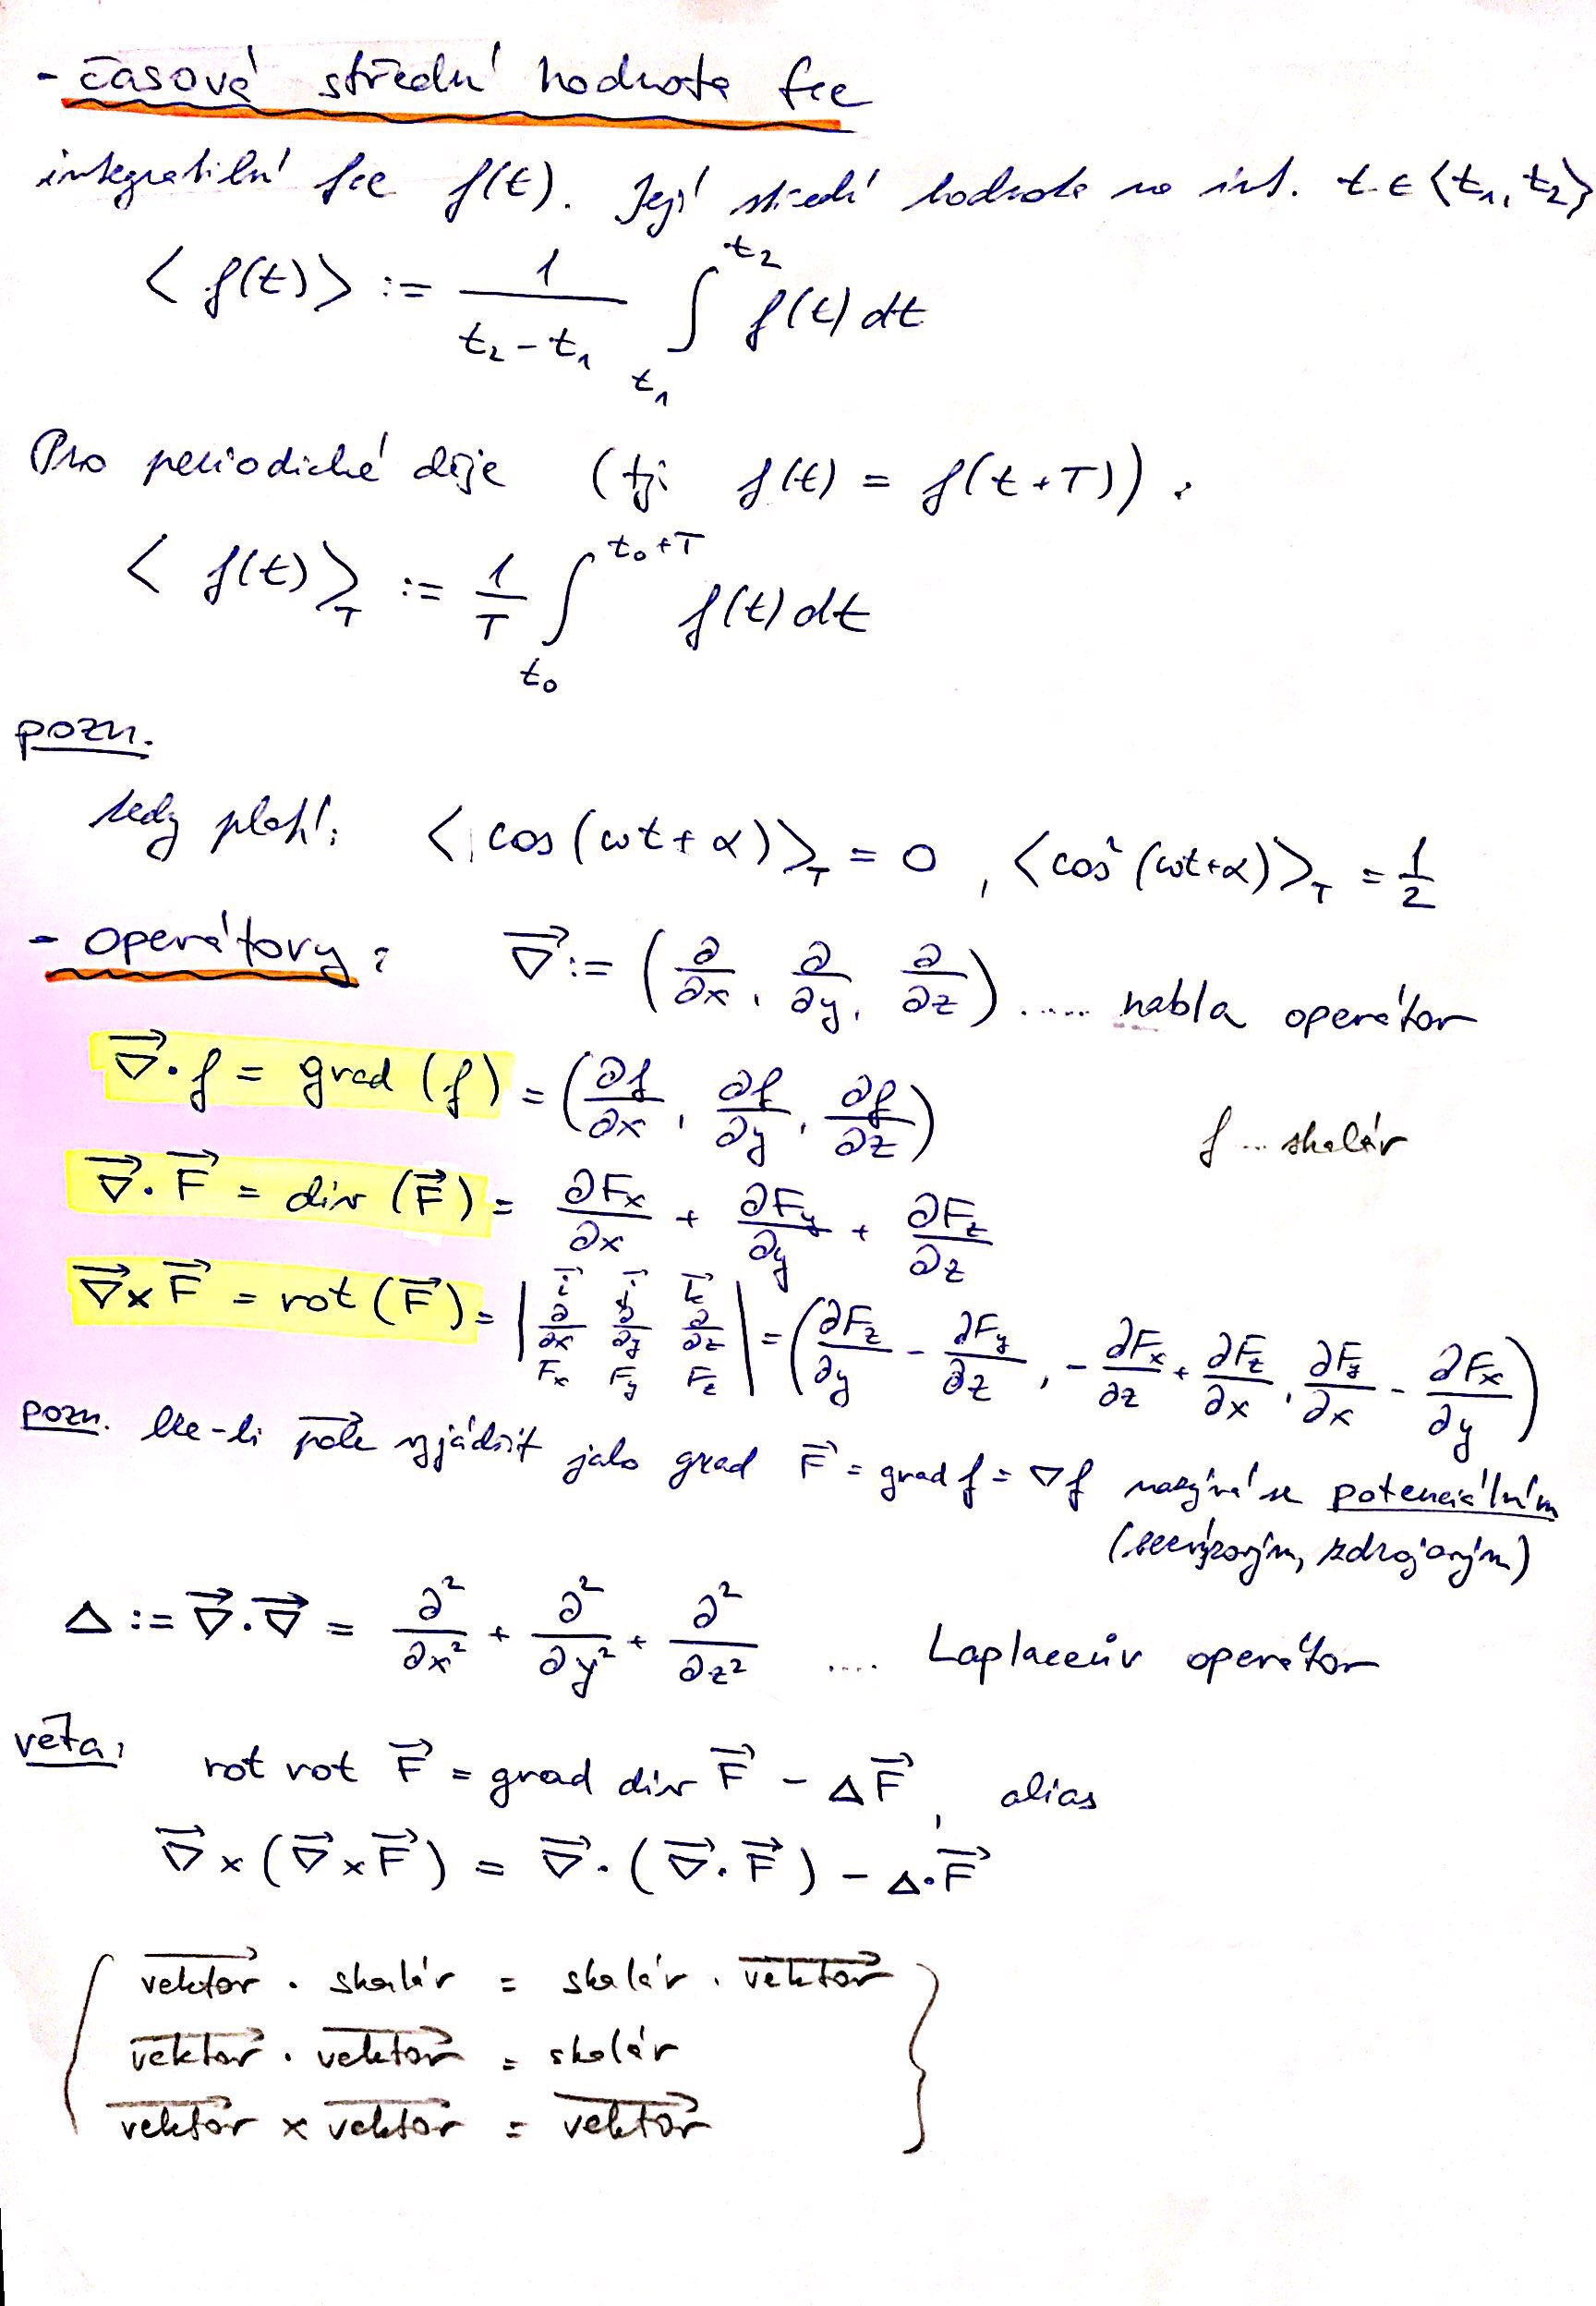 - časová střední hodnota fce
integrabilní fce f(t). Její střední hodnota na int. t ∈ ⟨t₁, t₂⟩
⟨ f(t) ⟩ := 1/(t₂ - t₁) ∫_{t₁}^{t₂} f(t) dt
Pro periodické děje (tj. f(t) = f(t+T)) :
⟨ f(t) ⟩_T := 1/T ∫_{t₀}^{t₀+T} f(t) dt
pozn.
tedy platí: ⟨ cos(ωt + α) ⟩_T = 0 , ⟨ cos²(ωt+α) ⟩_T = 1/2
- operátory : ∇⃗ := (∂/∂x, ∂/∂y, ∂/∂z) ..... nabla operátor
∇⃗ · f = grad (f) = (∂f/∂x, ∂f/∂y, ∂f/∂z) f ... skalár
∇⃗ · F⃗ = div (F⃗) = ∂Fx/∂x + ∂Fy/∂y + ∂Fz/∂z
∇⃗ × F⃗ = rot (F⃗) = | i⃗ j⃗ k⃗ ; ∂/∂x ∂/∂y ∂/∂z ; Fx Fy Fz | = (∂Fz/∂y - ∂Fy/∂z , - ∂Fx/∂z + ∂Fz/∂x , ∂Fy/∂x - ∂Fx/∂y)
pozn. lze-li pole vyjádřit jako grad F⃗ = grad f = ∇f nazývá se potenciálním
(nevírovým, zdrojovým)
Δ := ∇⃗ · ∇⃗ = ∂²/∂x² + ∂²/∂y² + ∂²/∂z² .... Laplaceův operátor
věta: rot rot F⃗ = grad div F⃗ - ΔF⃗ , alias
∇⃗ × (∇⃗ × F⃗) = ∇⃗ · (∇⃗ · F⃗) - Δ · F⃗
vektor · skalár = skalár · vektor
vektor · vektor = skalár
vektor × vektor = vektor